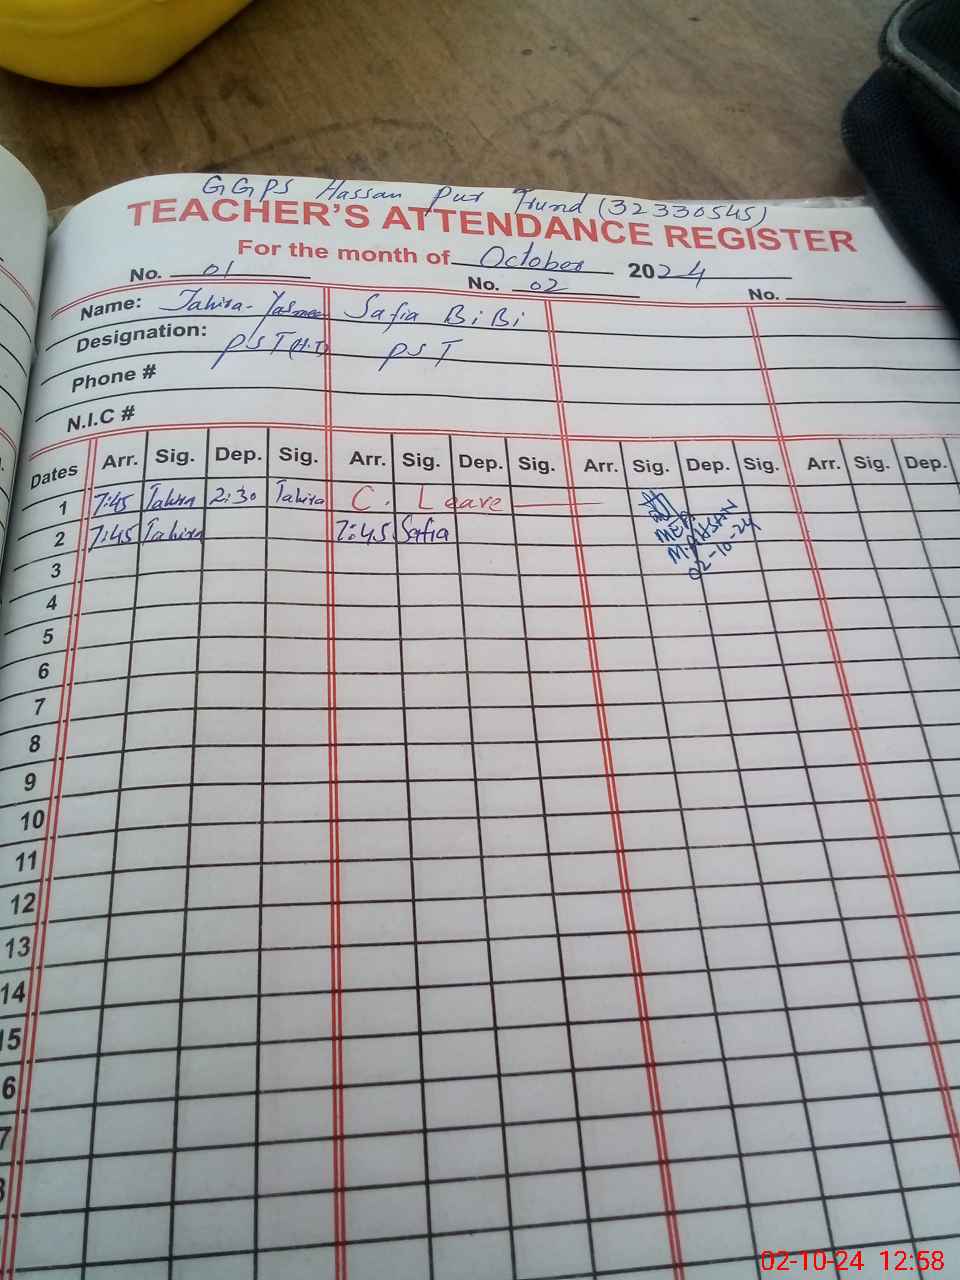 GGPS Hassan Pur Trund (32330545)
TEACHER'S ATTENDANCE REGISTER
For the month of October 2024
No. 01 No. 02 No.
Name: Tahira Yasmeen Safia BiBi
Designation: PST (H.T) PST
Phone #
N.I.C #
Dates Arr. Sig. Dep. Sig. Arr. Sig. Dep. Sig. Arr. Sig. Dep. Sig. Arr. Sig. Dep.
1 7:45 Tahira 2:30 Tahira C. Leave
2 7:45 Tahira 7:45 Safia
MEA
M. AHSAN
02-10-24
3
4
5
6
7
8
9
10
11
12
13
14
15
6
7
8
02-10-24 12:58